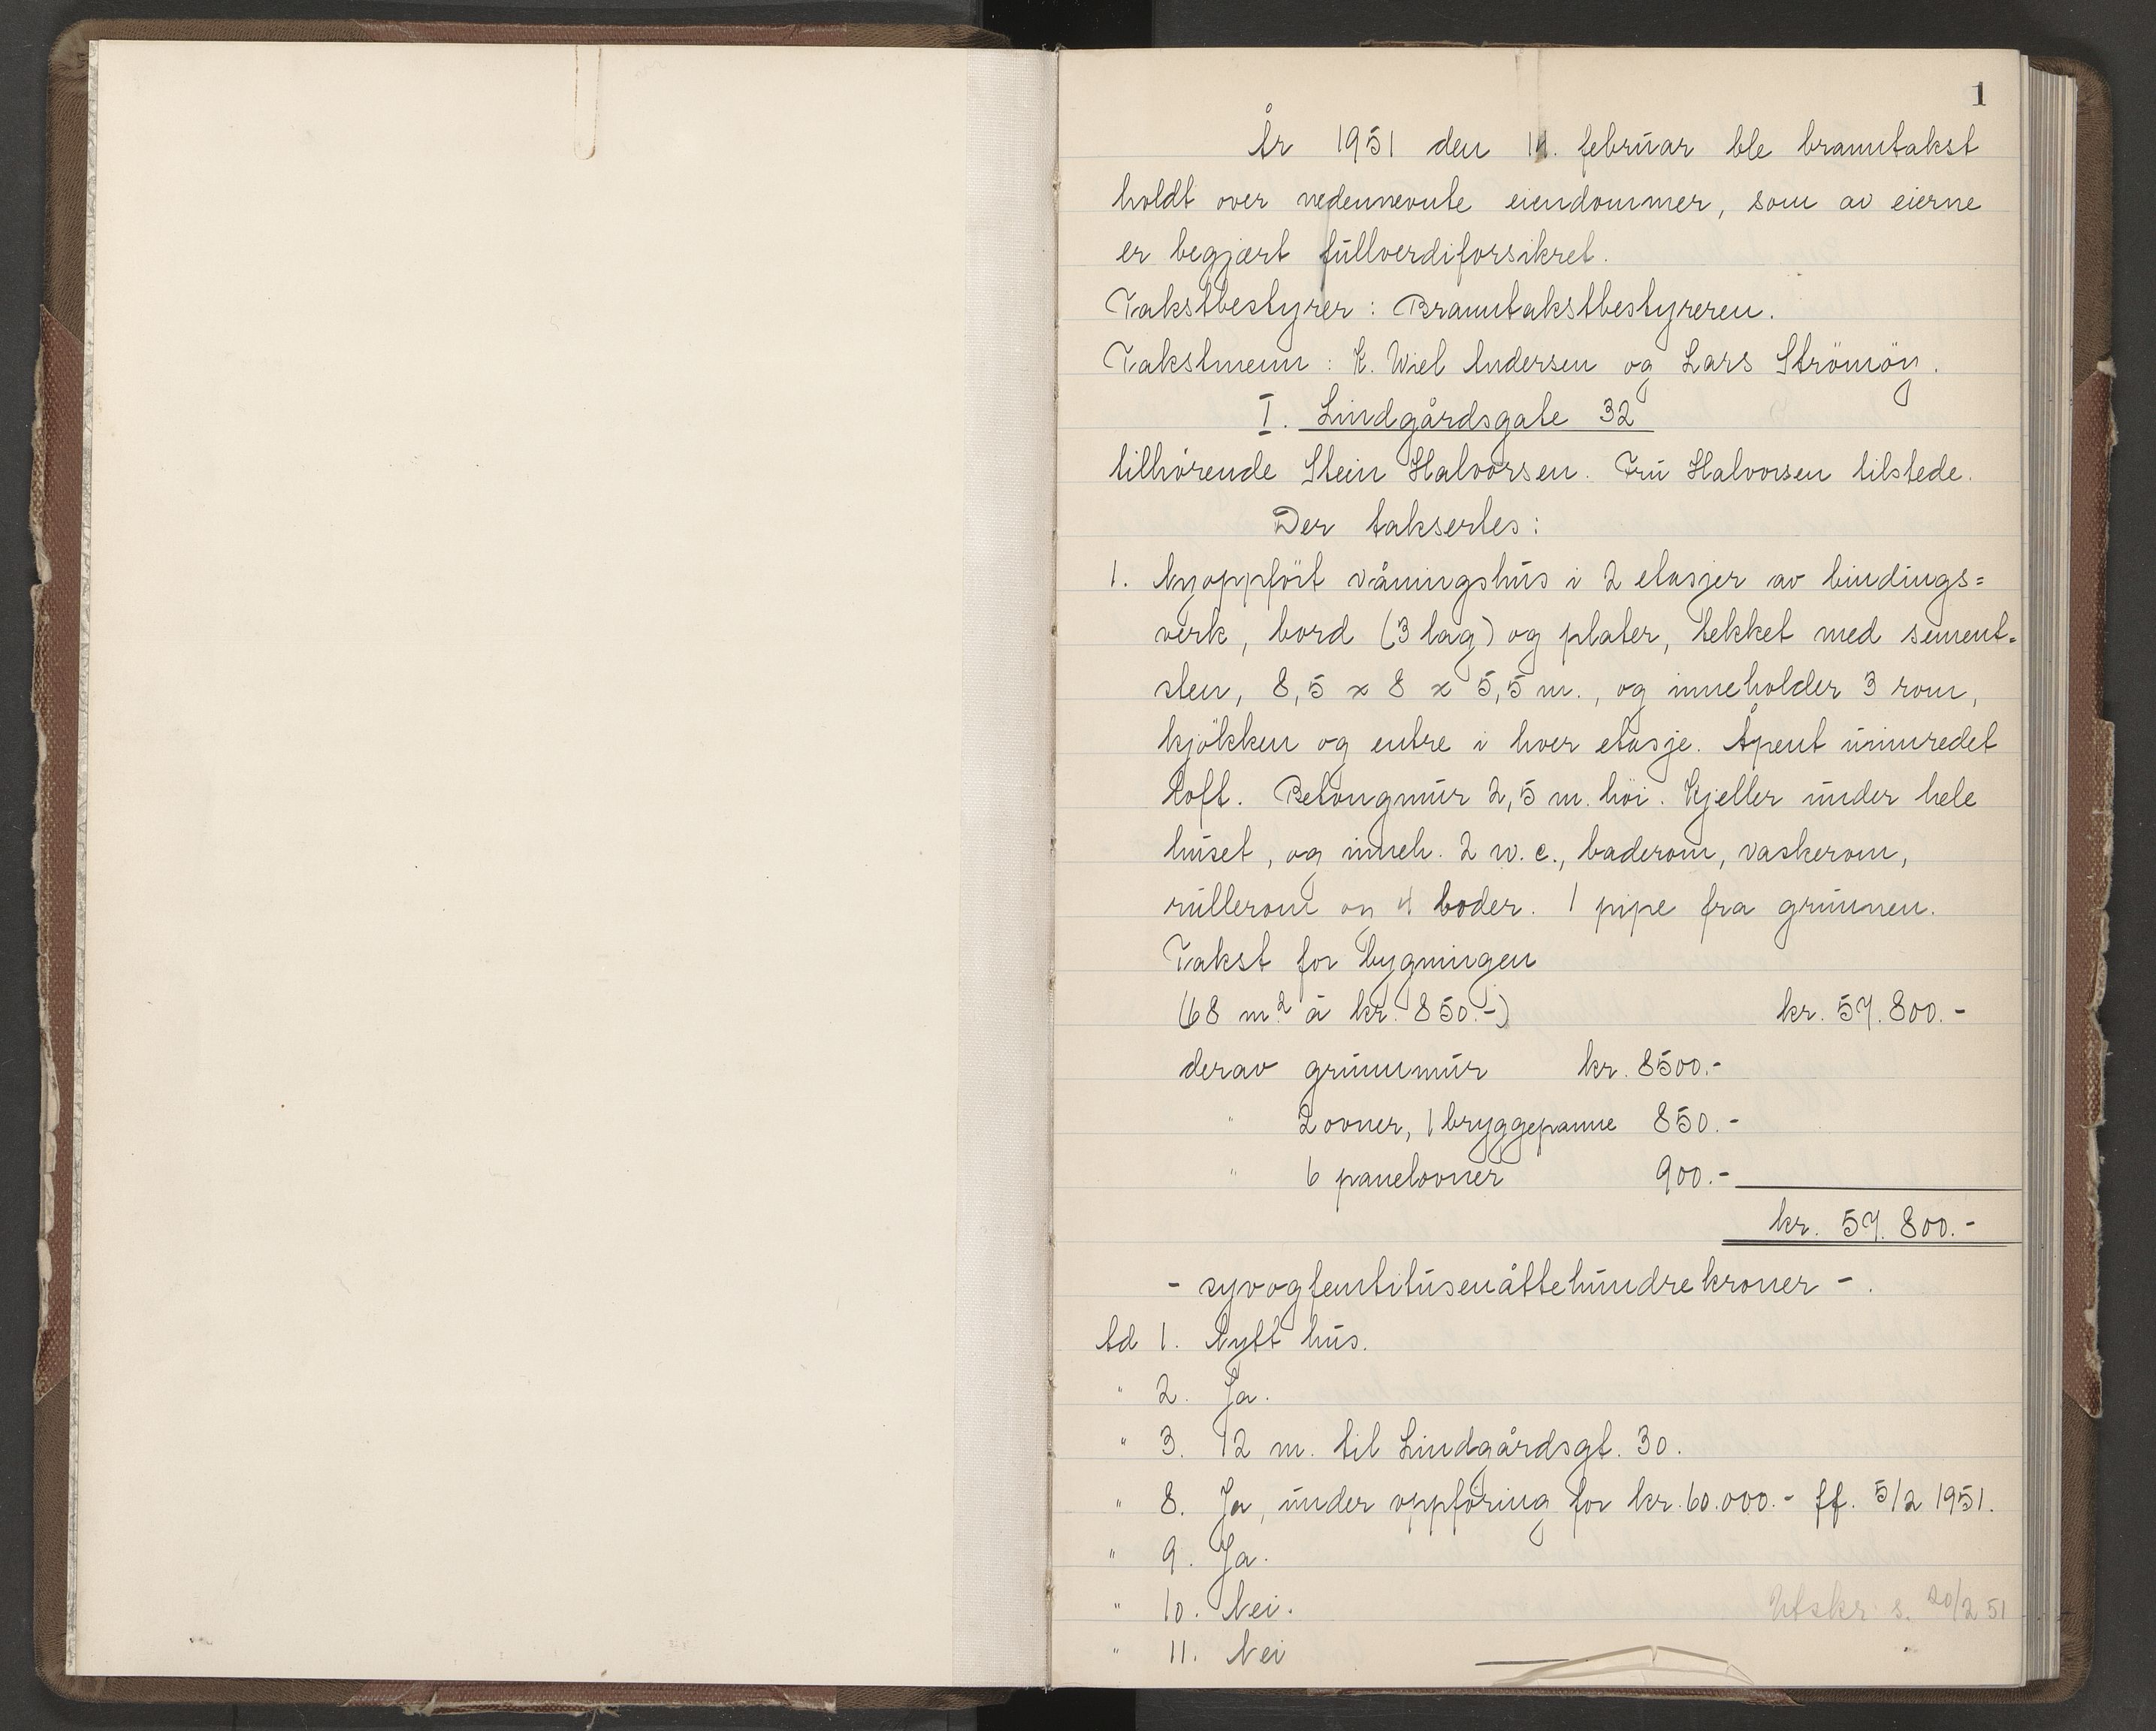 1
År 1951 den 14. februar ble branntakst
holdt over nedennevnte eiendommer, som av eierne
er begjært fullverdiforsikret.
Takstbestyrer : Branntakstbestyreren.
Takstmenn : K. Wiel Andersen og Lars Strömöy.
I. Lindgårdsgate 32
tilhörende Stein Halvorsen. Fru Halvorsen tilstede.
Der taksertes :
1. Nyoppfört våningshus i 2 etasjer av bindings=
verk, bord (3 lag) og plater, tekket med sement=
sten, 8,5 x 8 x 5,5 m., og inneholder 3 rom,
kjökken og entre i hver etasje. Åpent uinnredet
loft. Betongmur 2,5 m. höi. Kjeller under hele
huset, og inneh. 2 w.c., baderom, vaskerom,
rullerom og 4 boder. 1 pipe fra grunnen.
Takst for bygningen
(68 m² à kr. 850.-) kr. 57.800.-
derav grunnmur kr. 8500.-
" 2 ovner, 1 bryggepanne 850.-
" 6 panelovner 900.-
kr. 57.800.-
- syvogfemtitusenåttehundrekroner - .
Ad 1. Nytt hus.
" 2. Ja.
" 3. 12 m. til Lindgårdsgt. 30.
" 8. Ja, under oppföring for kr. 60.000.- ff. 5/2 1951.
" 9. Ja.
" 10. Nei.
Utskr. s. 20/2 51
" 11. Nei